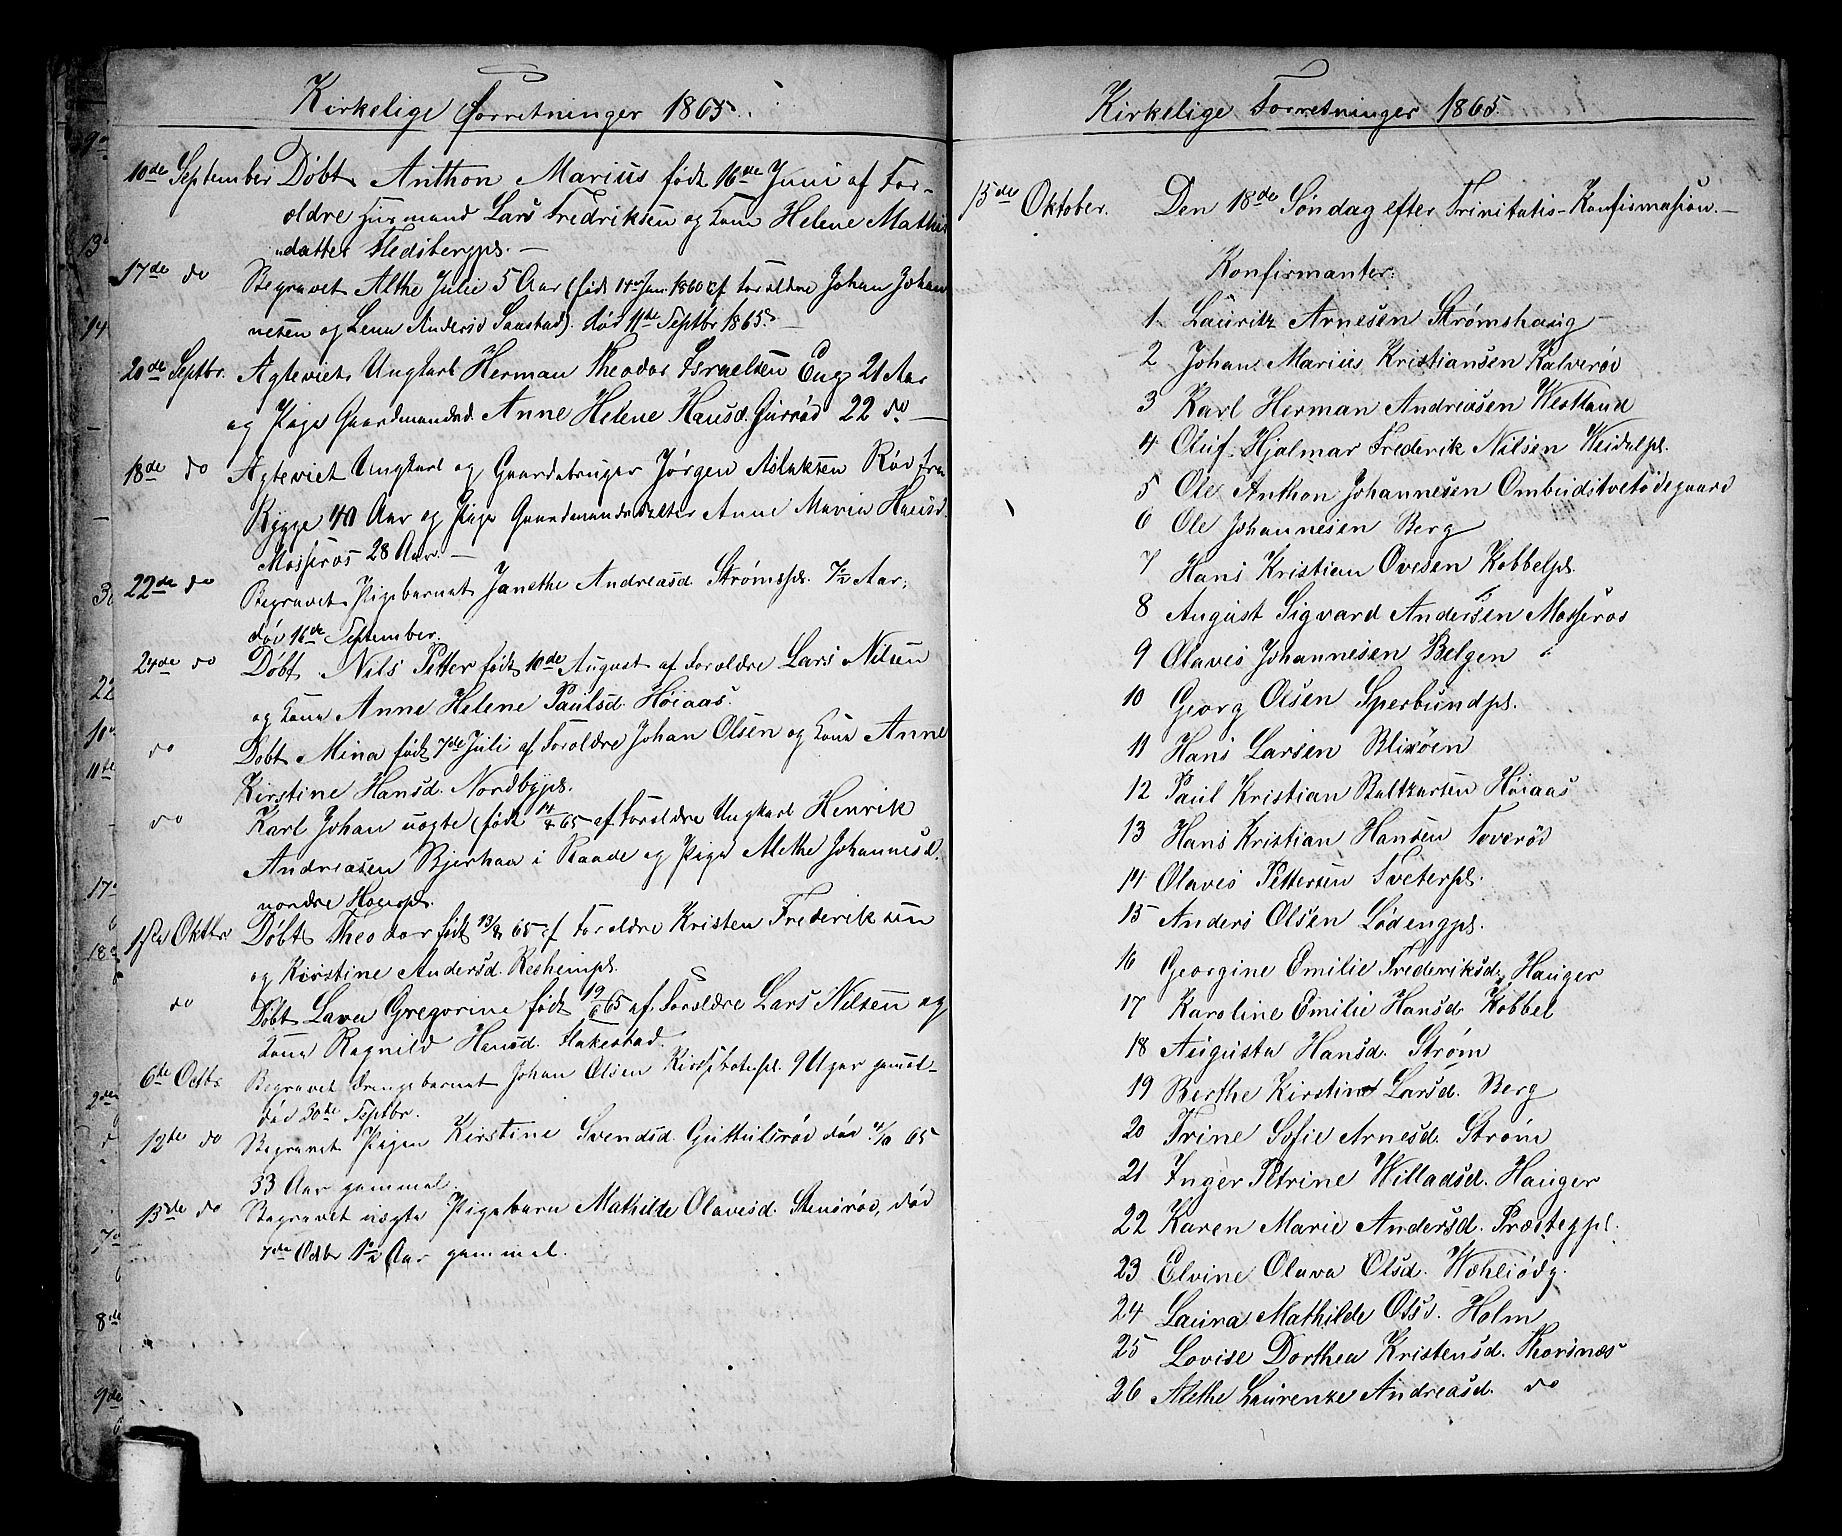 Kirkelige Forretninger 1865.
10de September Døbt Anthon Marius født 16de Juni af For-
ældre Huusmand Lars Fredriksen og Kone Helene Mathis
datter Fledsbergpl. —
17de do Begravet Althe Julie 5 Aar (født 14de Jan. 1860 af Forældre Johan Johan
nesen og Lena Andersd Saastad). død 11de Septbr 1865. —
20de Septbr. Ægteviet Ungkarl Herman Theodor Israelsen Eng 21 Aar
og Pige Gaardmandsd. Anne Helene Hansd. Gurrød 22 do —
18de do Ægteviet Ungkarl og Gaardsbruger Jørgen Aslaksen Rød fra
Rygge 40 Aar og Pige Gaardmandsdatter Anne Maria Hansd.
Mosseros 28 Aar. —
22de do Begravet Pigebarnet Janethe Andreasd Strømspl. 7/12 Aar,
død 16de September.
24de do Døbt Nils Petter født 10de August af Forældre Lars Nilsen
og Kone Anne Helene Paulsd. Høiaas.
do Døbt Mina født 7de Juli af Forældre Johan Olsen og Kone Anne
Kirstine Hansd. Nordbypl.
do Karl Johan uægte (født 65 af Forældre Ungkarl Henrik
Andreasen Bjerhaa i Raade og Pige Methe Johannesd.
nordre
1ste Oktbr Døbt Theodor født 13/8 65 af Forældre Kristen Frederiksen
og Kirstine Andersd.
do Døbt Lava Gregorine født 19/6 65 af Forældre Lars Nilsen og
Kone Ragnild Hansd. Flakestad.
6te Octb. Begravet Drengebarnet Johan Olsen 9 Uger gammel
død 30te Septbr.
12te do Begravet Pigen Kirstine Svendsd. Guttulsrød død 65
33 Aar gammel.
13de do Begravet uægte Pigebarn Mathilde Olavesd. Stensrød, død
7de Octbr Aar gammel.
Kirkelige Forretninger 1865.
15de Oktober. Den 18de Søndag efter Trinitatis-Konfirmasion. —
Konfirmanter:
1 Lauritz Arnesen Strømshaug —
2 Johan Marius Kristiansen Kalverød
3 Karl Herman Andreasen Westland
4 Oluf Hjalmar Frederik Nilsen Weidalpl.
5 Ole Anthon Johannesen Ombudstvetødegaard
6 Ole Johannesen Berg
7 Hans Kristian Ovesen Kobbelpl.
8 August Sigvard Andersen Mosseros
9 Olaves Johannesen Belgen
10 Georg Olsen Sperbundpl.
11 Hans Larsen Blixøen
12 Paul Kristian Baltzersen Høiaas
13 Hans Kristian Hansen Toverød
14 Olaves Pettersen Tveterpl.
15 Anders Olsen Lødengpl.
16 Georgine Emilie Frederiksd. Hauger
17 Karoline Emilie Hansd. Kobbel
18 Augusta Hansd. Strøm
19 Berthe Kirstine Larsd. Berg
20 Trine Sofie Arnesd. Strøm
21 Inger Petrine Willadsd. Hauger
22 Karen Marie Andersd. Præstegpl.
23 Elvine Olava Olsd.
24 Laura Mathilde Olsd. Holm
25 Lovise Dorthea Kristensd. Thorsnæs
26 Methe Laurenze Andreasd. do